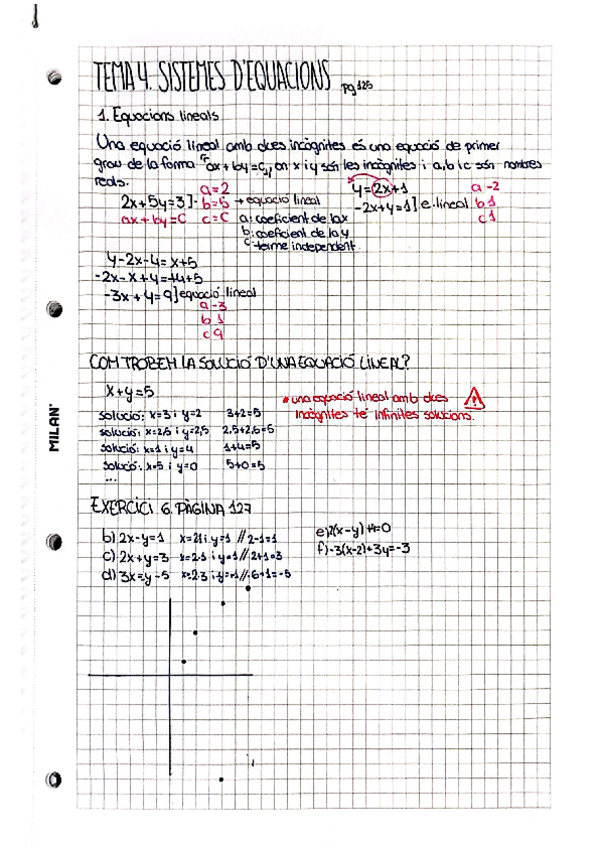 TEMA 4. SISTEMES D'EQUACIONS pg 125
1. Equacions lineals
Una equació lineal amb dues incògnites és una equació de primer
grau de la forma "ax + by = c", on x i y són les incògnites i a, b i c són nombres
reals.
2x + 5y = 3] - a = 2 b = 5 c = C → equació lineal
ax + by = C
a: coeficient de la x
b: coeficient de la y
c: terme independent.
y = 2x + 1
-2x + y = 1] e. lineal
a -2
b 1
c 1
y - 2x - 4 = x + 5
-2x - x + y = +4 + 5
-3x + y = 9] equació lineal
a -3
b 1
c 9
COM TROBEM LA SOLUCIÓ D'UNA EQUACIÓ LINEAL?
x + y = 5
solució: x = 3 i y = 2 3 + 2 = 5
solució: x = 2,5 i y = 2,5 2,5 + 2,5 = 5
solució: x = 1 i y = 4 1 + 4 = 5
solució: x = 5 i y = 0 5 + 0 = 5
...
* una equació lineal amb dues
incògnites té infinites solucions.
EXERCICI 6. PÀGINA 127
b) 2x - y = 1 y = 1 // 2 - 1 = 1
c) 2x + y = 3 y = 1 // 2 + 1 = 3
d) 3x = y - 5
e) 2(x - y)
f) -3(x - 2) + 3y = -3
MILAN